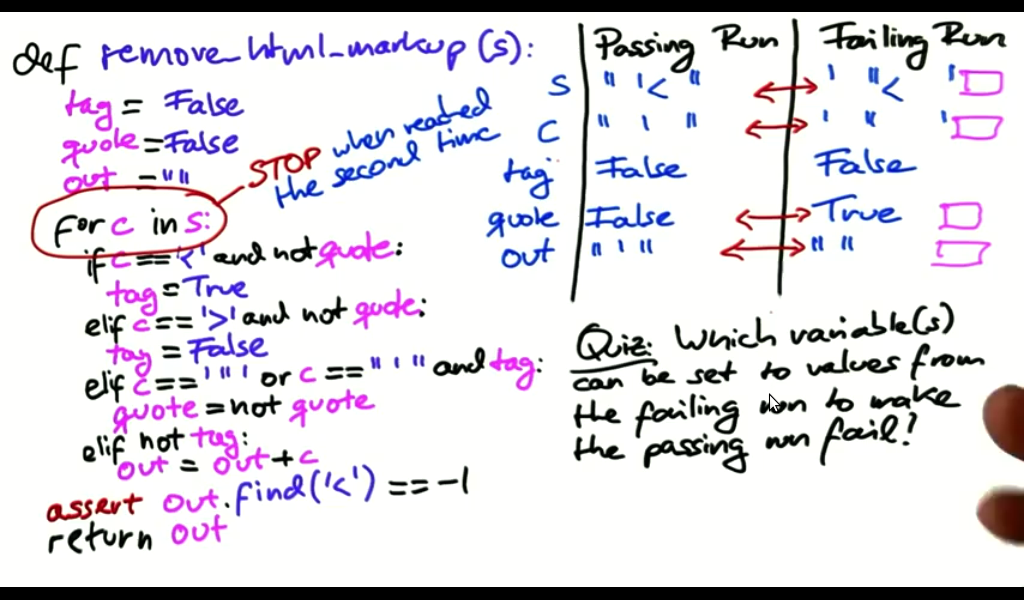 def remove_html_markup (s):
tag = False
quote = False
out = ""
for c in s:
STOP when reached
the second time
if c == '<' and not quote:
tag = True
elif c == '>' and not quote:
tag = False
elif c == '"' or c == "'" and tag:
quote = not quote
elif not tag:
out = out + c
assert out.find('<') == -1
return out
Passing Run Failing Run
s " '< " ' "< '
c " ' " ' " '
tag False False
quote False True
out " ' " " "
Quiz: Which variable(s)
can be set to values from
the failing run to make
the passing run fail?